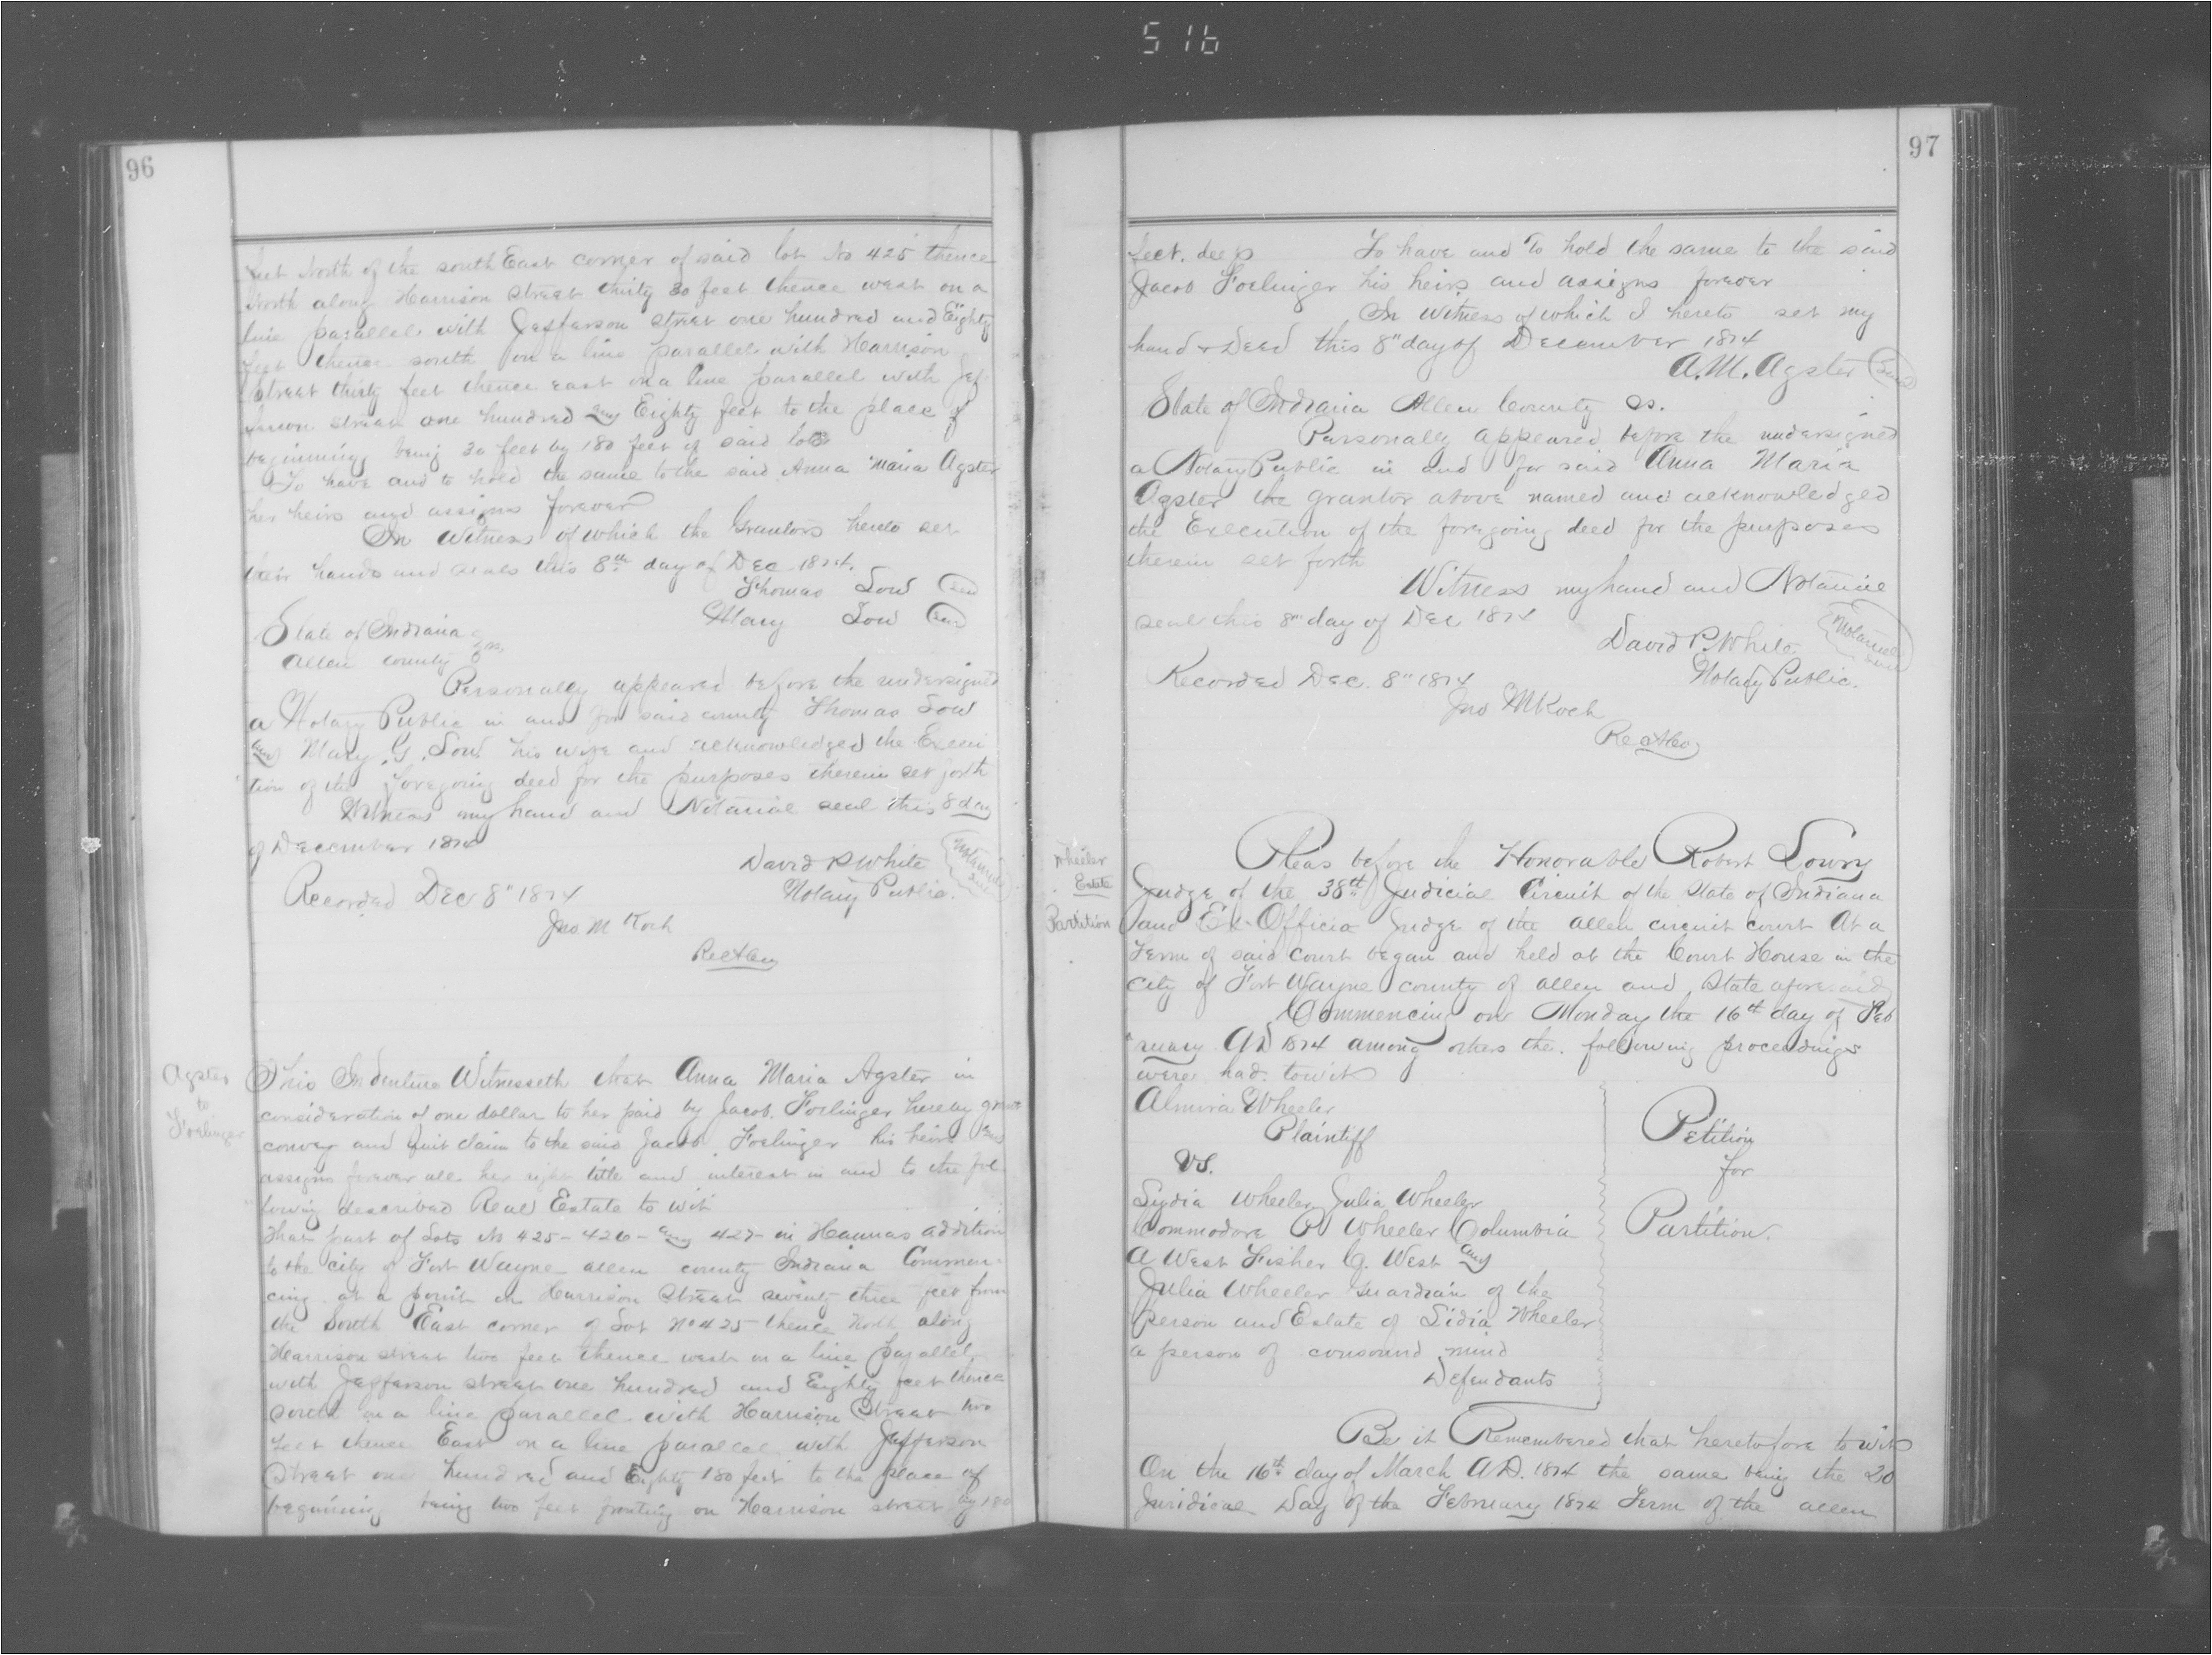 516
96
feet North of the south East corner of said lot No 425 thence
North along Harrison Street thirty 30 feet thence west on a
line parallel with Jefferson street one hundred and Eighty
feet thence south on a line parallel with Harrison
Street thirty feet thence east on a line parallel with Jef-
ferson street one hundred and Eighty feet to the place of
beginning being 30 feet by 180 feet of said lots
To have and to hold the same to the said Anna Maria Agster
her heirs and assigns forever
In Witness of which the Grantors hereto set
their hands and seals this 8th day of Dec 1874.
Thomas Low Seal
Mary Low Seal
State of Indiana
Allen county ss.
Personally appeared before the undersigned
a Notary Public in and for said county Thomas Low
and Mary G. Low his wife and acknowledged the Execu
tion of the foregoing deed for the purposes therein set forth
Witness my hand and Notarial seal this 8 day
of December 1874
David P White Notarial Seal
Notary Public.
Recorded Dec 8" 1874
Jno M Koch
RecAco
Agster
to
Foelinger
This Indenture Witnesseth that Anna Maria Agster in
consideration of one dollar to her paid by Jacob Foelinger hereby grant
convey and quit claim to the said Jacob Foelinger his heirs and
assigns forever all her right title and interest in and to the fol
lowing described Real Estate to wit
that part of Lots No 425 - 426 - and 427 - in Hannas addition
to the city of Fort Wayne allen county Indiana Commen-
cing at a point on Harrison Street seventy three feet from
the South East corner of Lot No 425 thence North along
Harrison street two feet thence west on a line parallel
with Jefferson street one hundred and Eighty feet thence
South on a line parallel with Harrison Street two
feet thence East on a line parallel with Jefferson
Street one hundred and Eighty 180 feet to the place of
beginning being two feet fronting on Harrison street by 180
97
feet. deep To have and To hold the same to the said
Jacob Foelinger his heirs and assigns forever
In Witness of which I hereto set my
hand & Deed this 8" day of December 1874
A.M. Agster Seal
State of Indiana Allen County ss.
Personally appeared before the undersigned
a Notary Public in and for said Anna Maria
Agster the grantor above named and acknowledged
the Execution of the foregoing deed for the purposes
therein set forth
Witness my hand and Notarial
seal this 8" day of Dec 1874
David P. White Notarial Seal
Notary Public.
Recorded Dec. 8" 1874
Jno M Koch
RecAco
Wheeler
Estate
Partition
Pleas before the Honorable Robert Lowry
Judge of the 38th Judicial Circuit of the State of Indiana
and Ex-Officia Judge of the allen circuit court At a
Term of said court began and held at the Court House in the
city of Fort Wayne county of allen and State aforesaid
Commencing on Monday the 16th day of Feb
ruary AD 1874 among others the following proceedings
were had towit
Almira Wheeler
Plaintiff
vs.
Lydia Wheeler Julia Wheeler
Commodore P Wheeler Columbia
A West Fisher C. West and
Julia Wheeler Guardian of the
person and Estate of Lidia Wheeler
a person of consound mind
Defendants
Petition
for
Partition.
Be it Remembered that heretofore to wit
On the 16th day of March A.D. 1874 the same being the 20
Juridical Day of the February 1874 Term of the allen